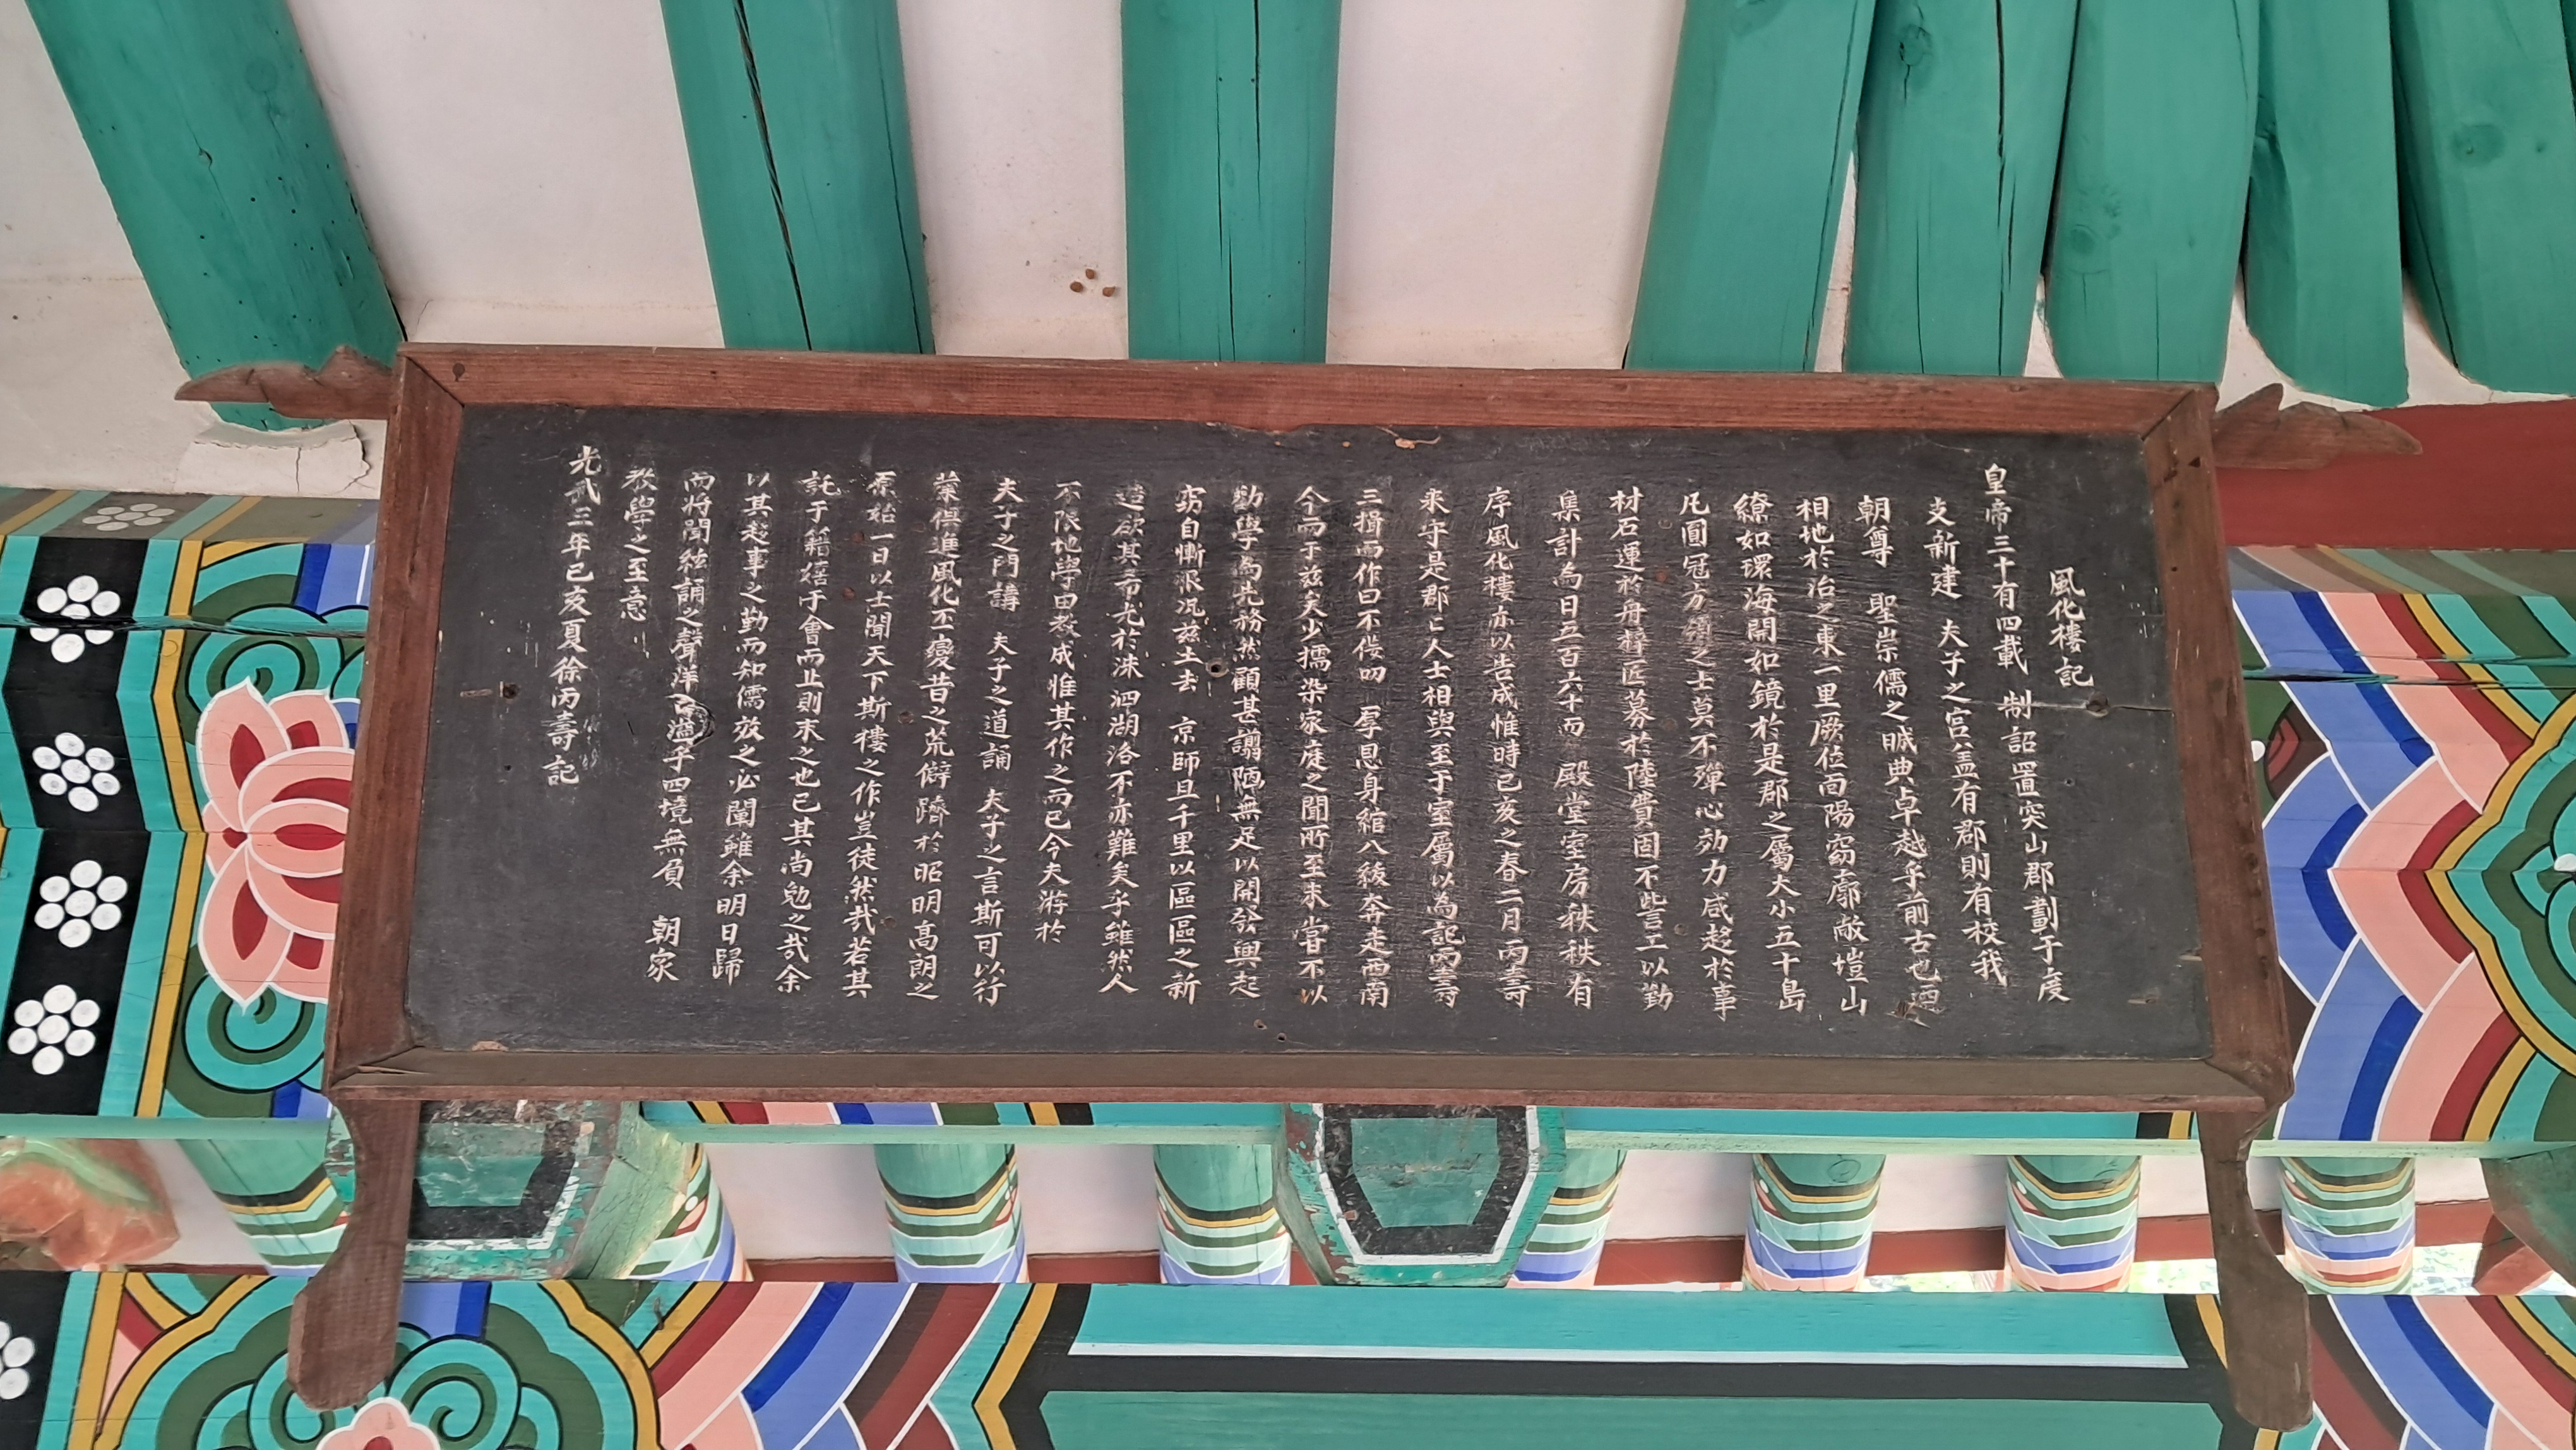 風化樓記
皇帝三十有四載 制詔置突山郡劃于度
支新建 夫子之宮盖有郡則有校我
朝尊 聖崇儒之晠典卓越乎前古也迺
相地於治之東一里厥位面陽窈廓敞塏山
繚如環海開如鏡於是郡之屬大小五十島
凡圓冠方領之士莫不殫心効力咸趍於事
材石運於舟楫匠募於陸費固不訾工以勤
集計爲日五百六十而 殿堂室房秩秩有
序風化樓亦以告成惟時己亥之春二月丙壽
來守是郡匕人士相與至于室屬以爲記丙壽
三揖而作曰不侫叨 厚恩身綰八紱奔走西南
今而于玆矣少擩染家庭之聞所至未嘗不以
勸學爲先務然顧甚謭陋無足以開發興起
窃自慚恨况玆土去 京師且千里以區區之新
造欲其希光於洙泗湖洛不亦難矣乎雖然人
不限地學由教成惟其作之而已今夫游於
夫子之門講 夫子之道誦 夫子之言斯可以行
蒙俱進風化丕變昔之荒僻躋於昭明高朗之
原始一日以士聞天下斯樓之作豈徒然哉若其
託于籍嬉于會而止則末之也已其尚勉之哉余
以其趍事之勤而知儒效之必闡雖余明日歸
而將聞絃誦之聲洋匕溢乎四境無負 朝家
教學之至意
光武三年己亥夏徐丙壽記